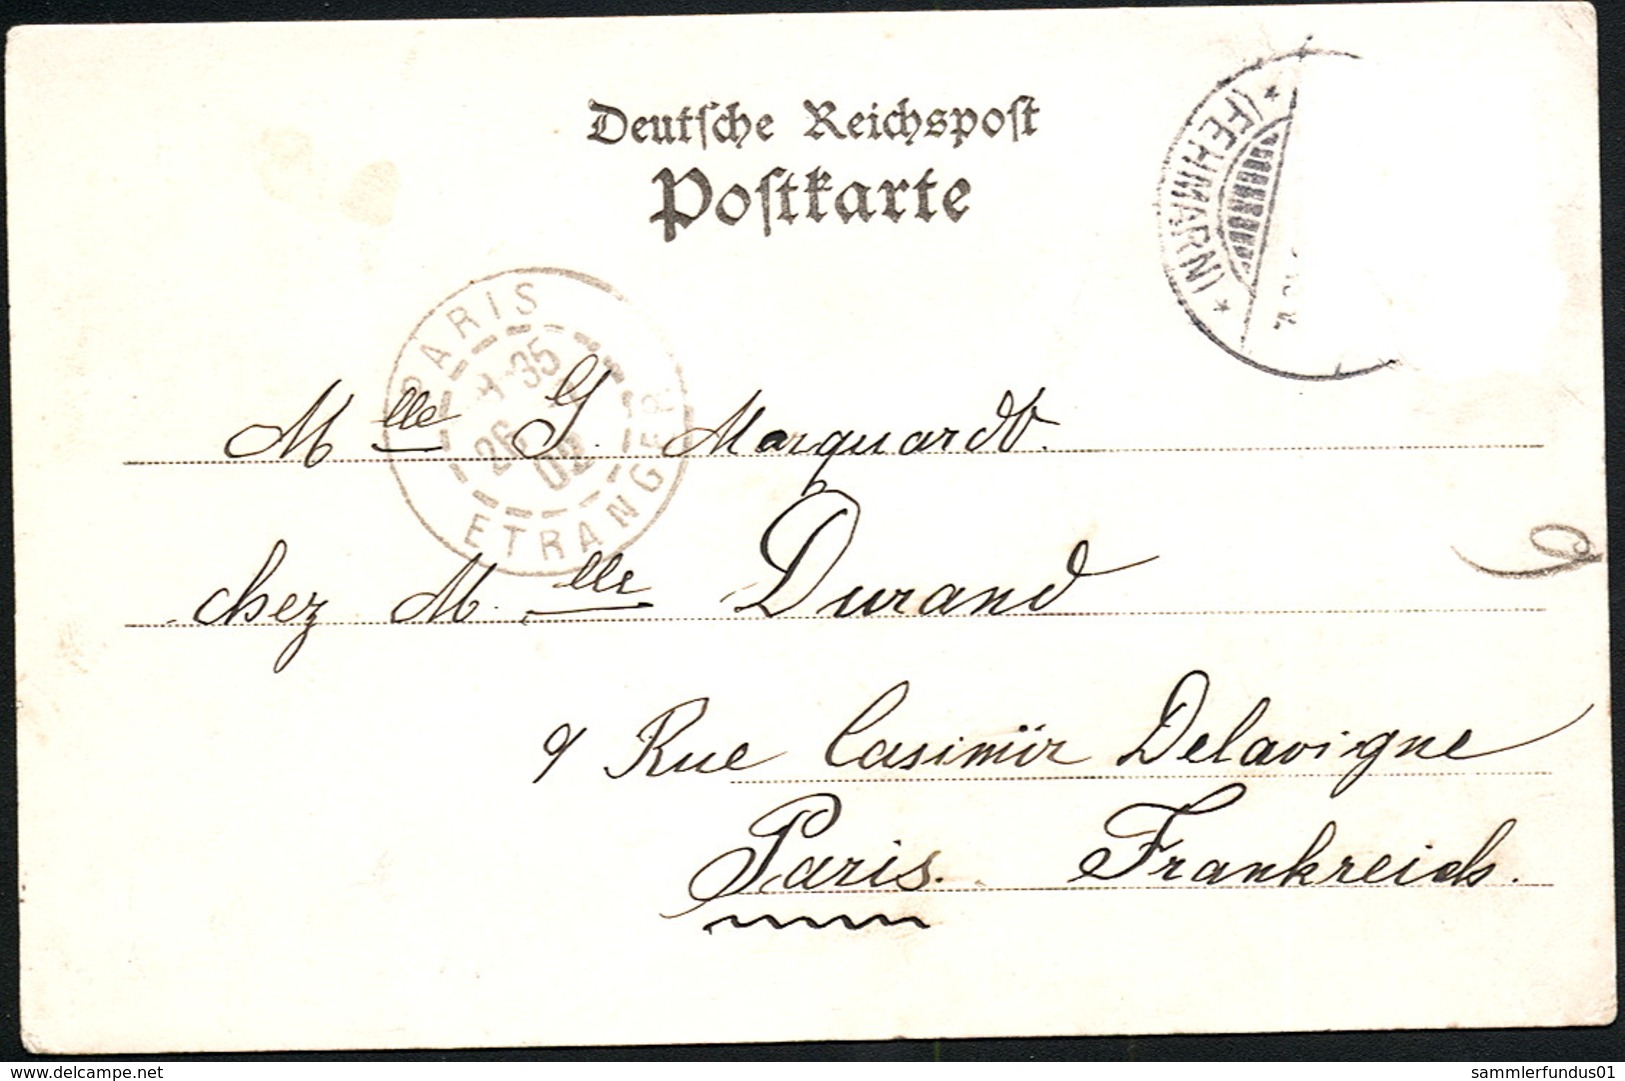 Deutsche Reichspost
Postkarte
* (FEHMARN) *
PARIS
35
26
02
ETRANGER
Mlle G. Marquardt.
chez Mlle Durand
9 Rue Casimir Delavigne
Paris. Frankreich.
www.delcampe.net
sammlerfundus01